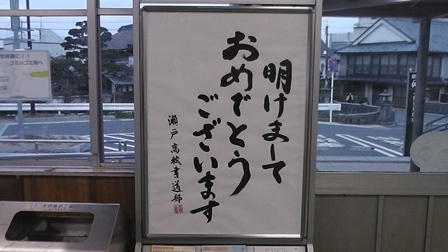 明けまして
おめでとう
ございます
瀬戸高校書道部